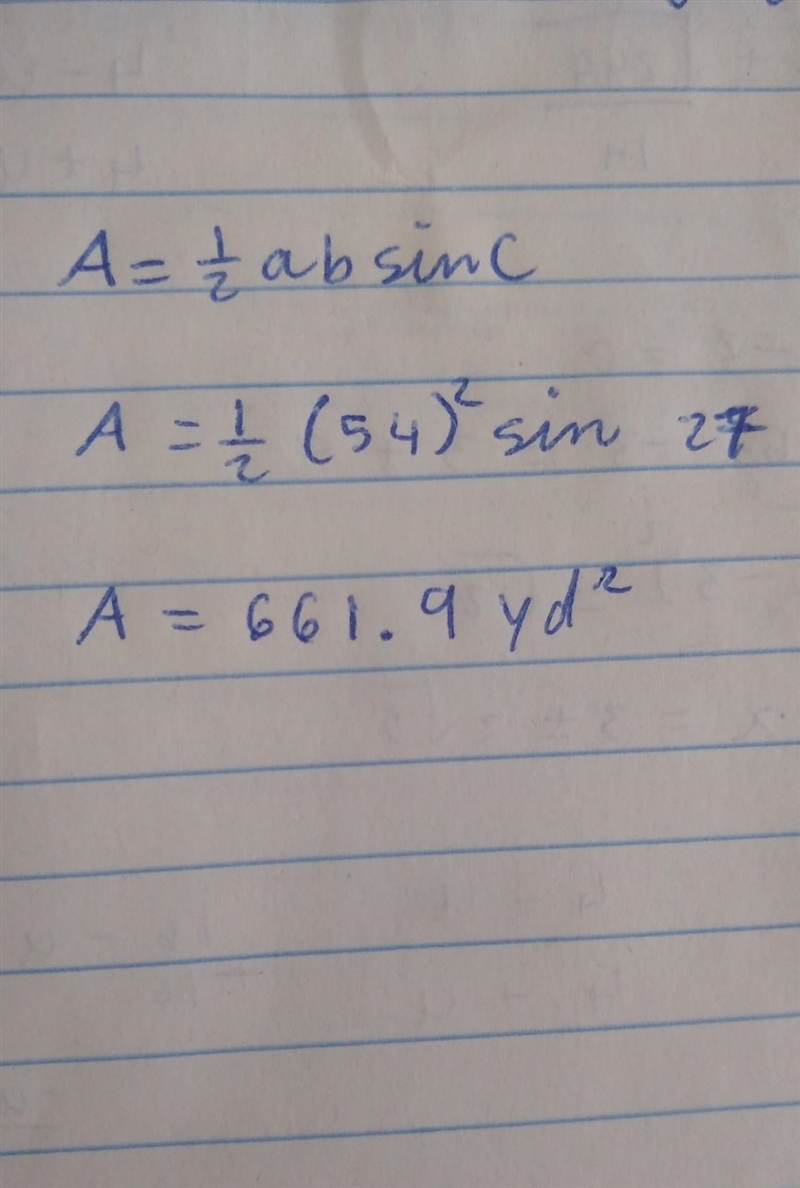 A = 1/2 ab sin C
A = 1/2 (54)² sin 27
A = 661.9 yd²